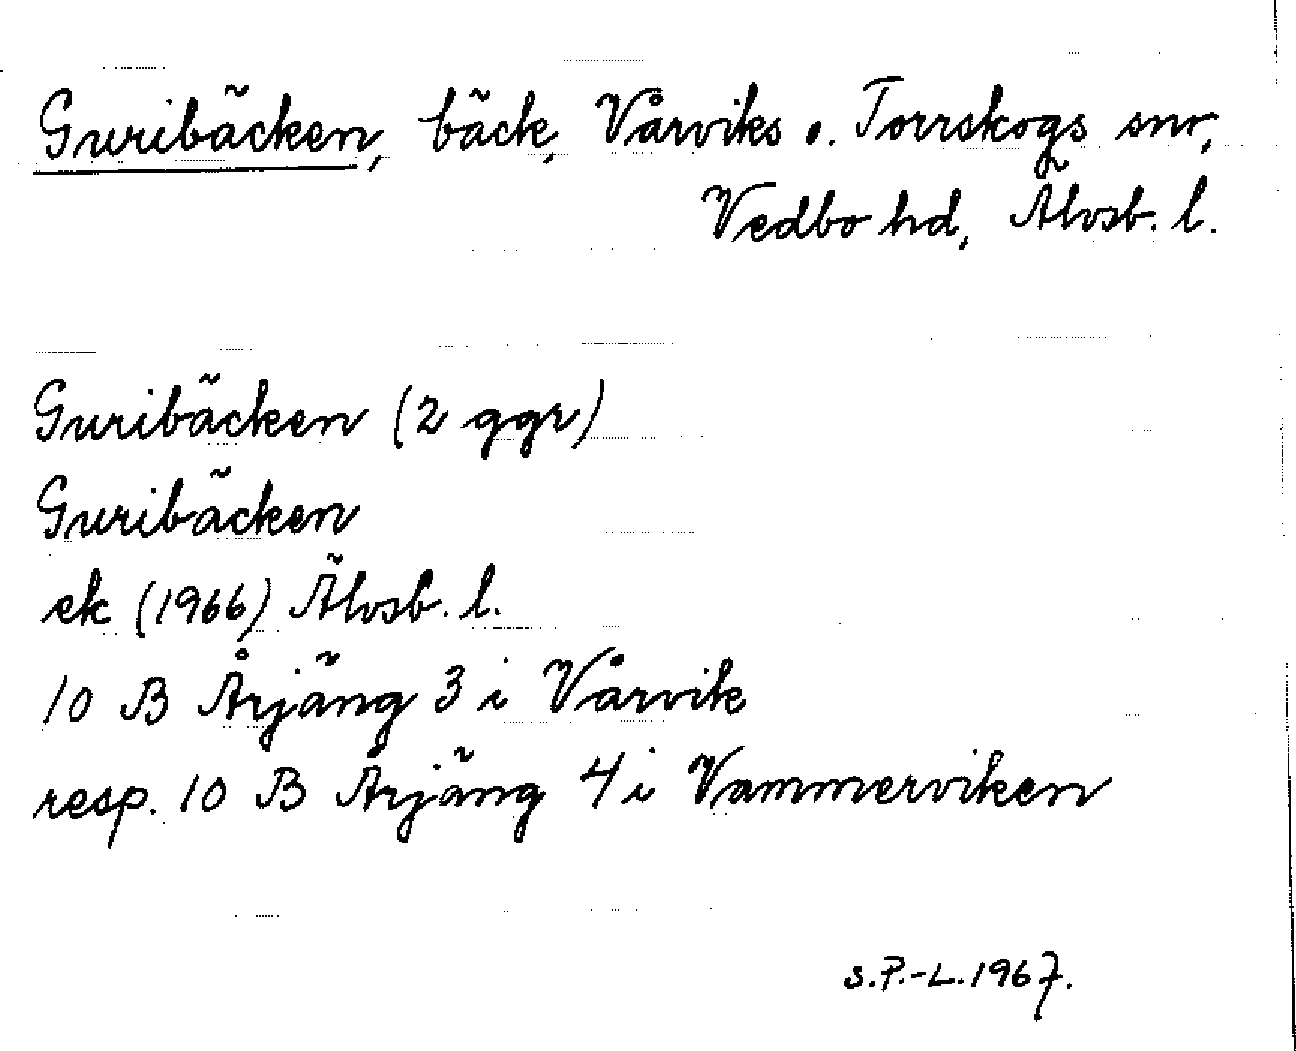 Guribäcken, bäck, Vårviks o. Torrskogs snr,
Vedbo hd, Älvsb. l.
Guribäcken (2 ggr)
Guribäcken
ek (1966) Älvsb. l.
10 B Årjäng 3 i Vårvik
resp. 10 B Årjäng 4 i Vammerviken
S.P.-L. 1967.